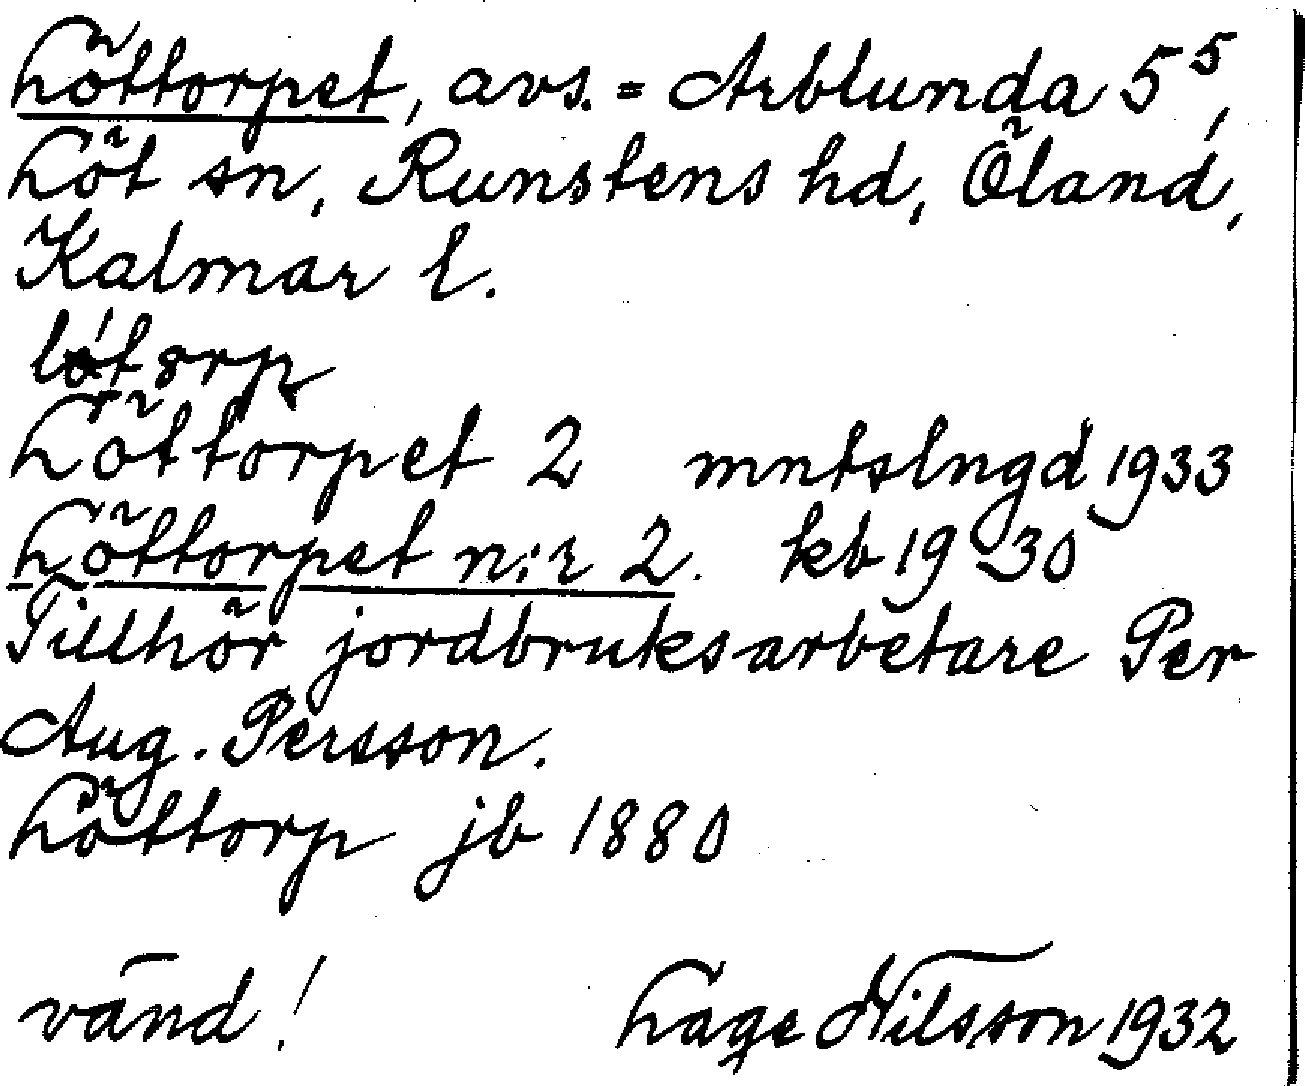 Löttorpet, avs. = Arblunda 5⁵,
Löt sn, Runstens hd, Öland,
Kalmar l.
Löttorpet 2 mntslngd 1933
Löttorpet n:r 2. kb 1930
Tillhör jordbruksarbetare Per
Aug. Persson.
Löttorp jb 1880
vänd! Lage Nilsson 1932